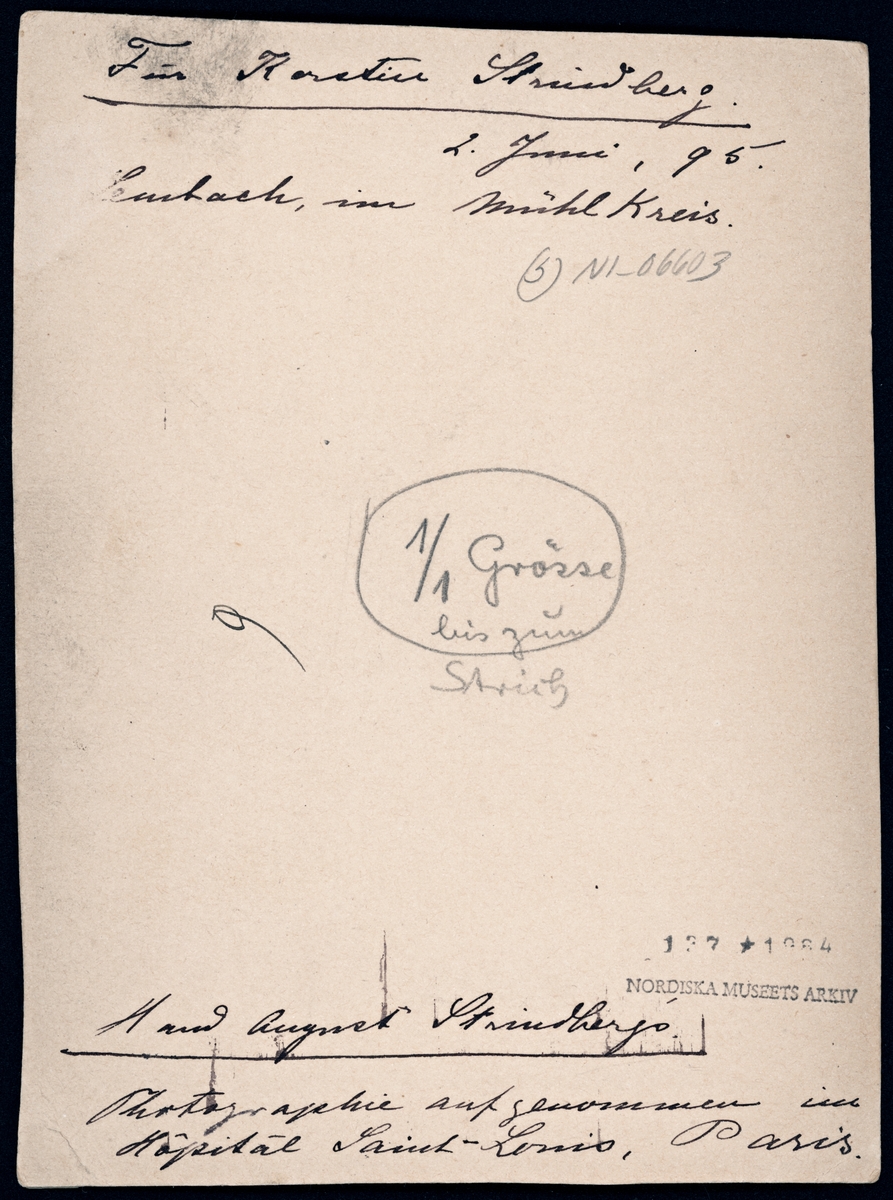 Für Kerstin Strindberg.
2. Juni, 95.
Lembach, im Mühl Kreis.
(5) NI-06603
1/1 Grösse
bis zum
Strich
137 ★ 1984
NORDISKA MUSEETS ARKIV
Hand August Strindbergs.
Photographie aufgenommen im
Hôpital Saint-Louis, Paris.